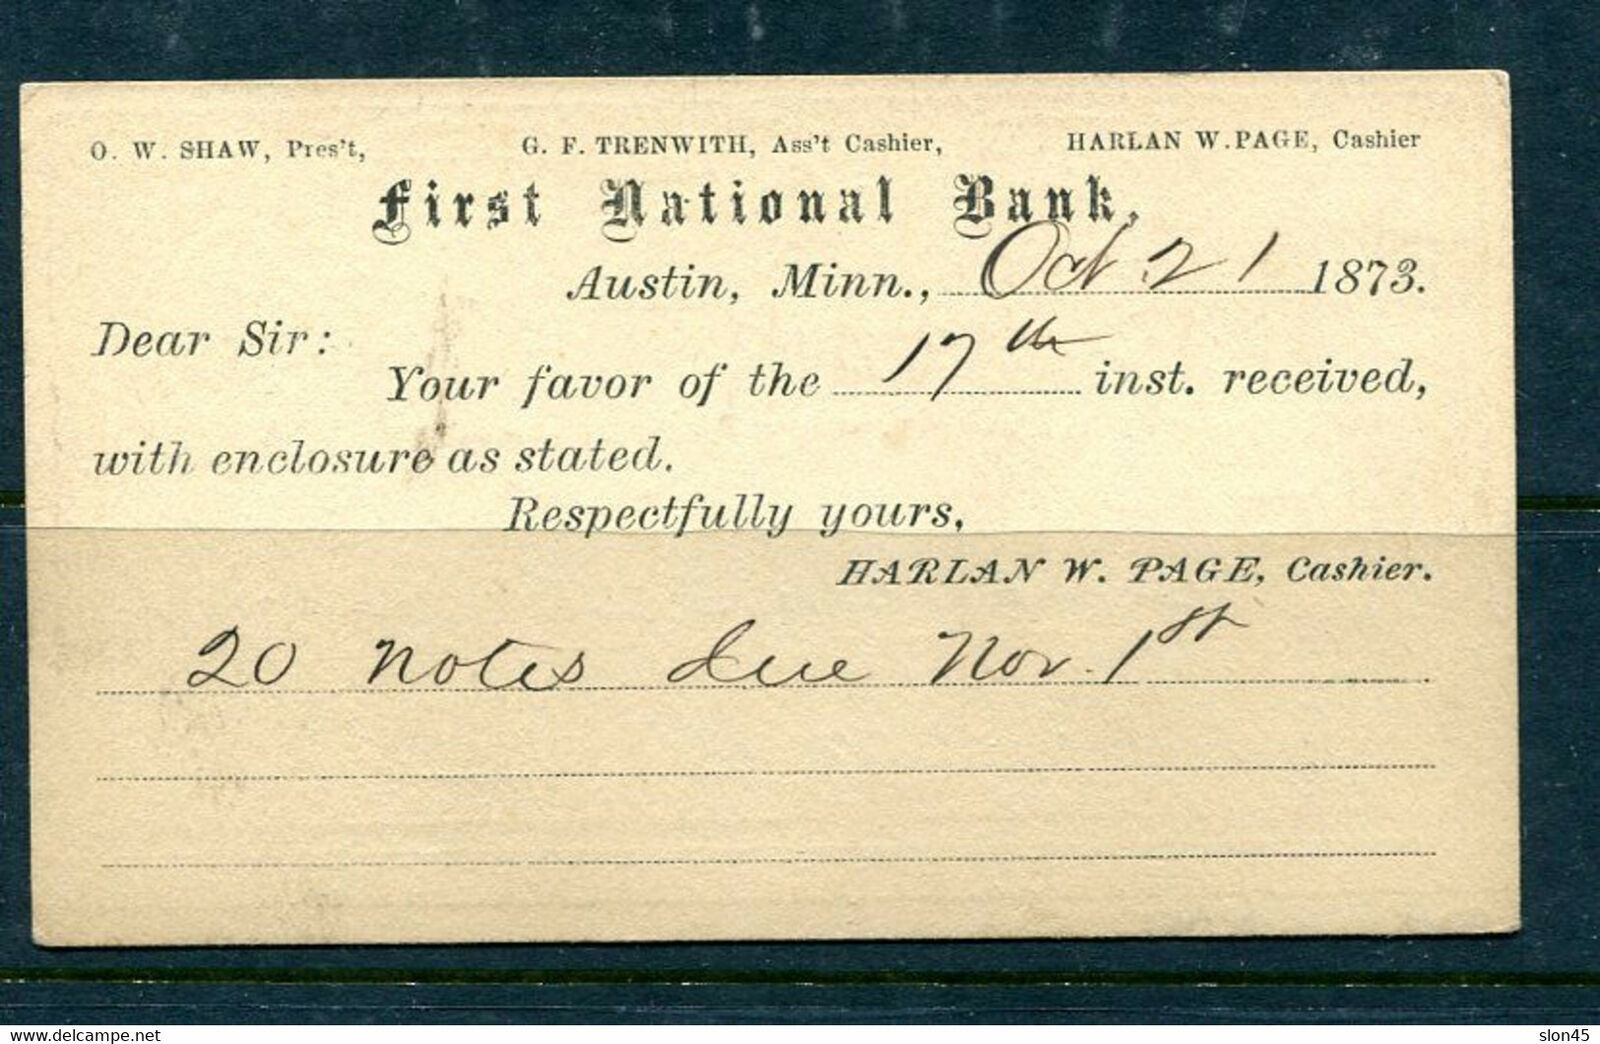 O. W. SHAW, Pres't, G. F. TRENWITH, Ass't Cashier, HARLAN W. PAGE, Cashier
First National Bank,
Austin, Minn., Oct 21 1873.
Dear Sir:
Your favor of the 17th inst. received,
with enclosure as stated.
Respectfully yours,
HARLAN W. PAGE, Cashier.
20 notes due Nov. 1st
Delcampe.net slon45